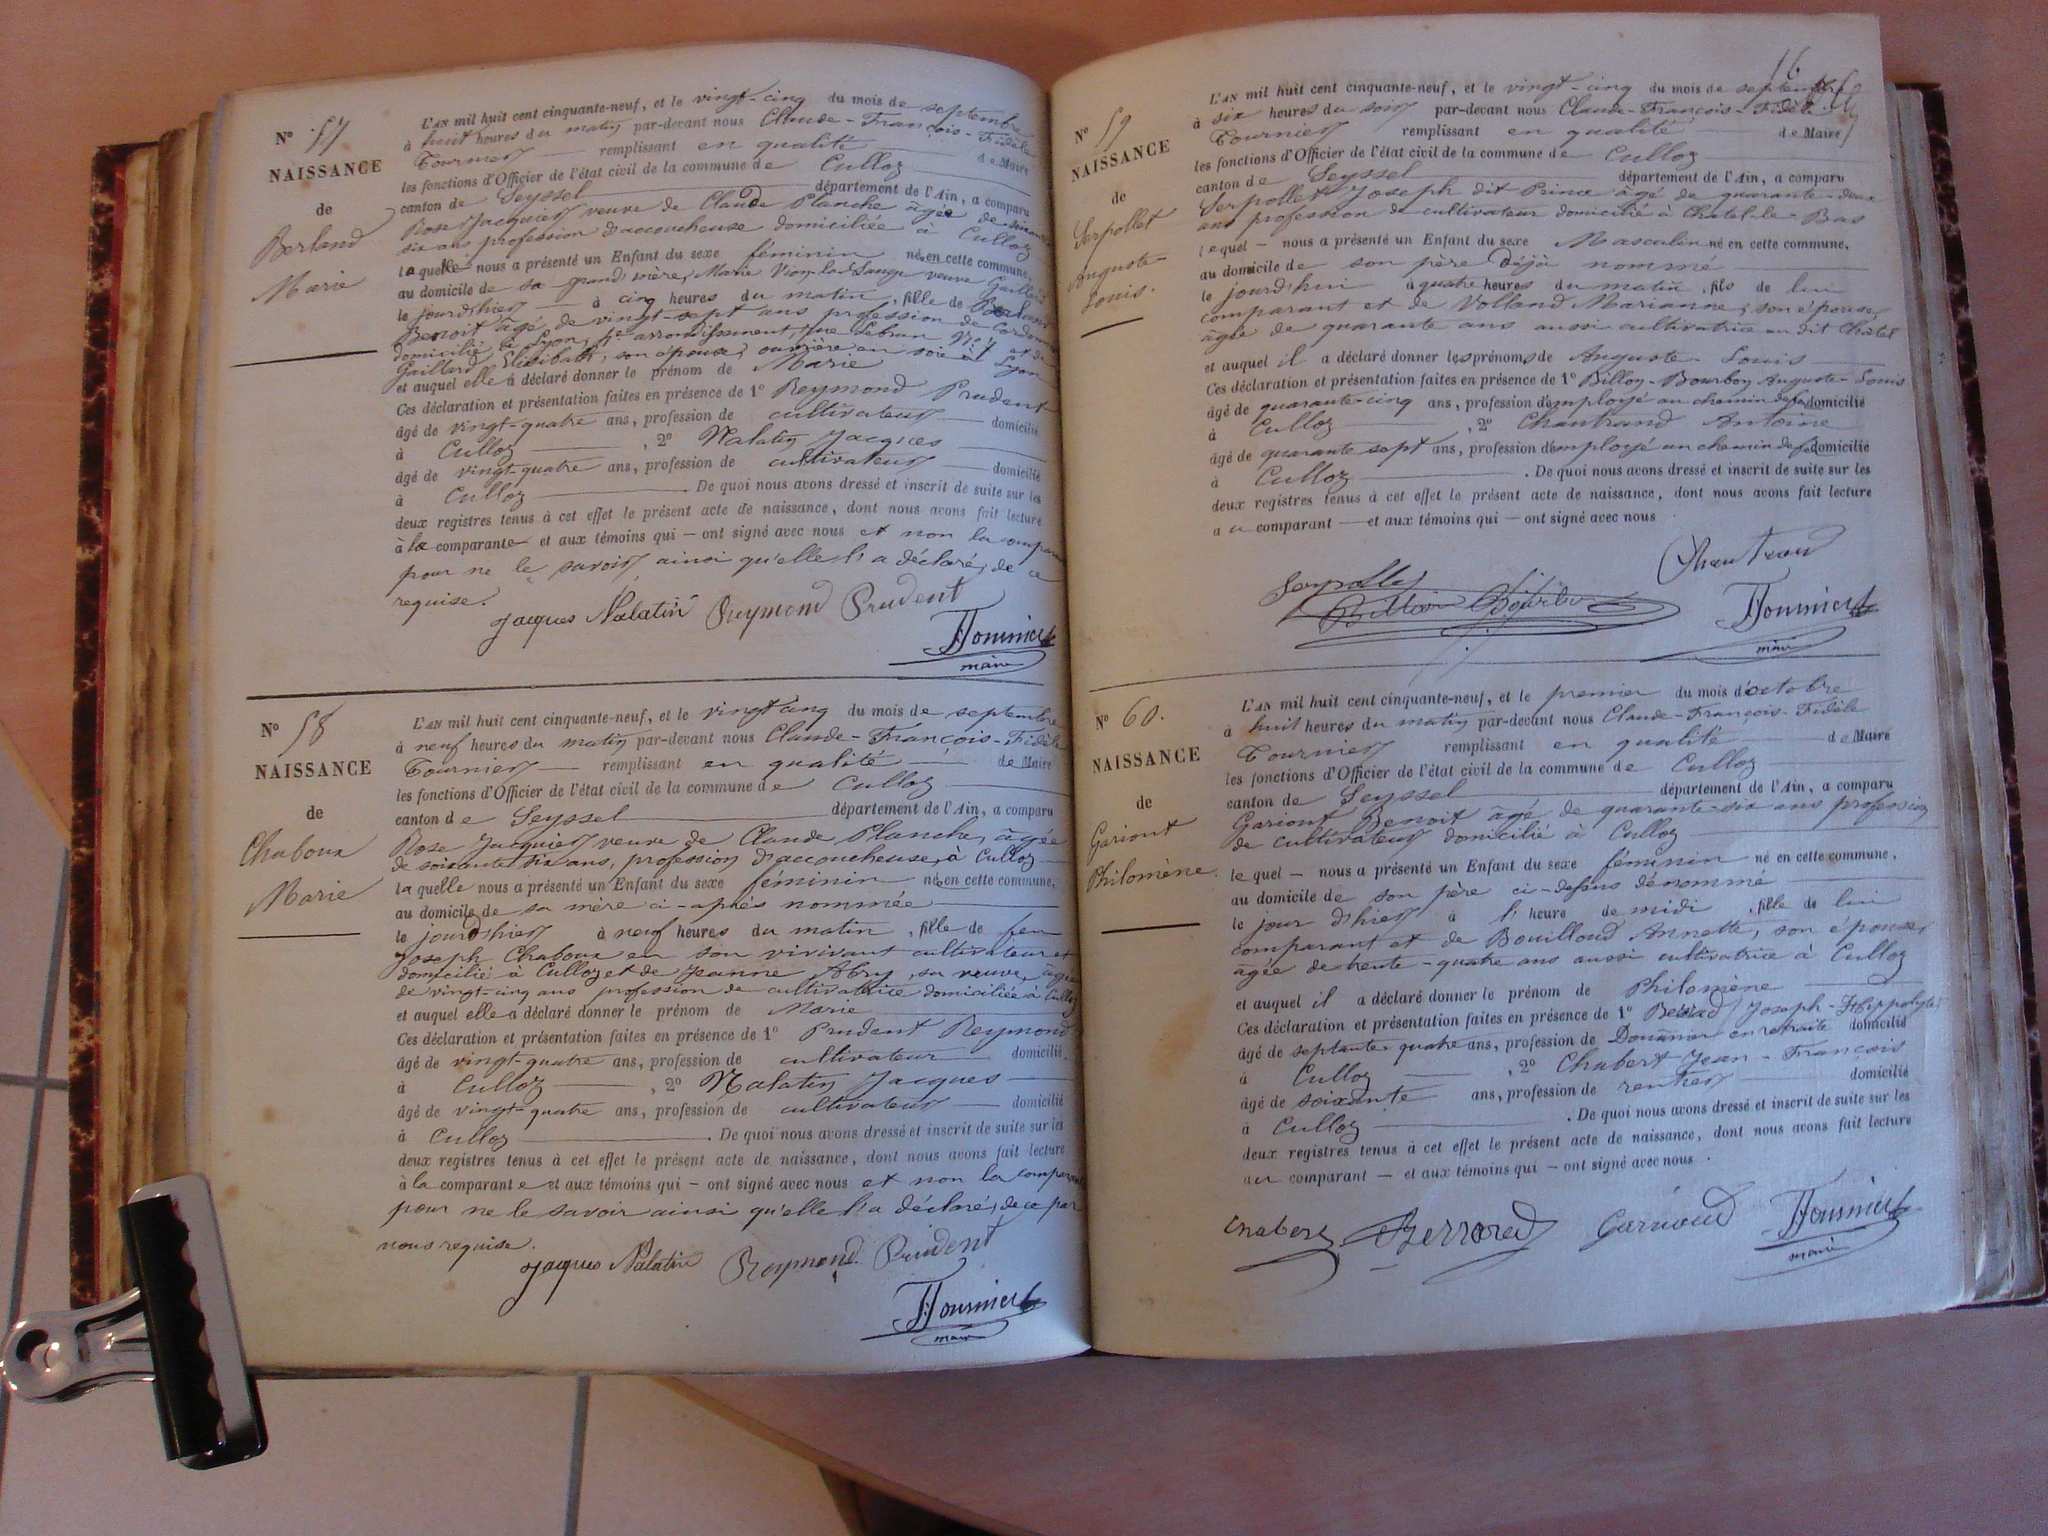 N° 57
NAISSANCE
de
Berland
Marie
L'AN mil huit cent cinquante-neuf, et le vingt-cinq du mois de septembre
à huit heures du matin par-devant nous Claude-François-Fidèle
Tournier remplissant en qualité de Maire
les fonctions d'Officier de l'état civil de la commune de Culloz
canton de Seyssel département de l'Ain, a comparu
Rose Jacquier veuve de Claude Planche âgée de soixante
six ans profession d'accoucheuse domiciliée à Culloz
laquelle nous a présenté un Enfant du sexe féminin né en cette commune,
au domicile de sa grand mère, Marie veuve Gaillard
le jourd'hier à cinq heures du matin, fille de Berland
Benoit âgé de vingt-sept ans profession de Cordonnier
domicilié à Lyon, arrondissement, rue Lebrun N° et de
Gaillard son épouse, ouvrière en soie à Lyon
et auquel elle a déclaré donner le prénom de Marie
Ces déclaration et présentation faites en présence de 1° Reymond Prudent
âgé de vingt-quatre ans, profession de cultivateur domicilié
à Culloz , 2° Nalatin Jacques
âgé de vingt-quatre ans, profession de cultivateur domicilié
à Culloz . De quoi nous avons dressé et inscrit de suite sur les
deux registres tenus à cet effet le présent acte de naissance, dont nous avons fait lecture
à la comparante et aux témoins qui – ont signé avec nous et non la comparante
pour ne le savoir ainsi qu'elle l'a déclaré, de ce
requise.
Jacques Nalatin Reymond Prudent
Tournier
maire
N° 58
NAISSANCE
de
Chaboux
Marie
L'AN mil huit cent cinquante-neuf, et le vingt cinq du mois de septembre
à neuf heures du matin par-devant nous Claude-François-Fidèle
Tournier remplissant en qualité de Maire
les fonctions d'Officier de l'état civil de la commune de Culloz
canton de Seyssel département de l'Ain, a comparu
Rose Jacquier veuve de Claude Planche, âgée
de soixante six ans, profession d'accoucheuse, à Culloz
laquelle nous a présenté un Enfant du sexe féminin né en cette commune,
au domicile de sa mère ci-après nommée
le jourd'hier à neuf heures du matin, fille de feu
Joseph Chaboux en son vivivant cultivateur et
domicilié à Culloz et de Jeanne Abry, sa veuve, âgée
de vingt-cinq ans profession de cultivatrice domiciliée à Culloz
et auquel elle a déclaré donner le prénom de Marie
Ces déclaration et présentation faites en présence de 1° Prudent Reymond
âgé de vingt-quatre ans, profession de cultivateur domicilié
à Culloz , 2° Nalatin Jacques
âgé de vingt-quatre ans, profession de cultivateur domicilié
à Culloz . De quoi nous avons dressé et inscrit de suite sur les
deux registres tenus à cet effet le présent acte de naissance, dont nous avons fait lecture
à la comparante et aux témoins qui – ont signé avec nous et non la comparante
pour ne le savoir ainsi qu'elle l'a déclaré, de ce par
nous requise.
Jacques Nalatin Reymond Prudent
Tournier
maire
16
N° 59
NAISSANCE
de
Serpollet
Auguste-
Louis.
L'AN mil huit cent cinquante-neuf, et le vingt-cinq du mois de septembre
à six heures du soir par-devant nous Claude-François-Fidèle
Tournier remplissant en qualité de Maire
les fonctions d'Officier de l'état civil de la commune de Culloz
canton de Seyssel département de l'Ain, a comparu
Serpollet Joseph dit Prince âgé de quarante-deux
ans profession de cultivateur domicilié à Chatel-le-Bas
lequel – nous a présenté un Enfant du sexe Masculin né en cette commune,
au domicile de son père déjà nommé
le jourd'hui à quatre heures du matin, fils de lui
comparant et de Volland Marianne, son épouse,
âgée de quarante ans aussi cultivatrice au dit Châtel
et auquel il a déclaré donner les prénoms de Auguste-Louis
Ces déclaration et présentation faites en présence de 1° Billon-Bourbon Auguste-Louis
âgé de quarante-cinq ans, profession d'employé au chemin de fer domicilié
à Culloz , 2° Chantrand Antoine
âgé de quarante sept ans, profession d'employé au chemin de fer domicilié
à Culloz . De quoi nous avons dressé et inscrit de suite sur les
deux registres tenus à cet effet le présent acte de naissance, dont nous avons fait lecture
au comparant – et aux témoins qui – ont signé avec nous
Chantrand
Serpollet
Billon Bourbon
Tournier
maire
N° 60.
NAISSANCE
de
Gariout
Philomène.
L'AN mil huit cent cinquante-neuf, et le premier du mois d'octobre
à huit heures du matin par-devant nous Claude-François-Fidèle
Tournier remplissant en qualité de Maire
les fonctions d'Officier de l'état civil de la commune de Culloz
canton de Seyssel département de l'Ain, a comparu
Gariout Benoit âgé de quarante-six ans profession
de cultivateur domicilié à Culloz
lequel – nous a présenté un Enfant du sexe féminin né en cette commune,
au domicile de son père ci-dessus dénommé
le jour d'hier à l'heure de midi, fille de lui
comparant et de Bouilloud Annette, son épouse,
âgée de trente-quatre ans aussi cultivatrice à Culloz
et auquel il a déclaré donner le prénom de Philomène
Ces déclaration et présentation faites en présence de 1° Berrard Joseph-Hippolyte
âgé de septante quatre ans, profession de Douanier en retraite domicilié
à Culloz , 2° Chabert Jean-François
âgé de soixante ans, profession de rentier domicilié
à Culloz . De quoi nous avons dressé et inscrit de suite sur les
deux registres tenus à cet effet le présent acte de naissance, dont nous avons fait lecture
au comparant – et aux témoins qui – ont signé avec nous.
Chabert Berrard Garioud Tournier
maire